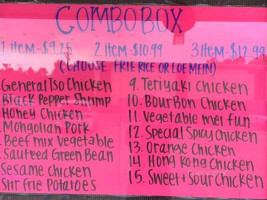 COMBO BOX
1 Item-$9.25 2 Item-$10.99 3 Item-$12.99
(CHOOSE FRIE RICE OR LOEMEIN)
General Tso Chicken
Black Pepper Shrimp
Honey Chicken
Mongolian Pork
Beef mix Vegetable
Sauteed Green Bean
Sesame Chicken
Stir frie Potatoes
9. Teriyaki Chicken
10. Bourbon Chicken
11. Vegetable mei fun
12. Special Spicy Chicken
13. Orange Chicken
14. Hong Kong Chicken
15. Sweet + Sour Chicken